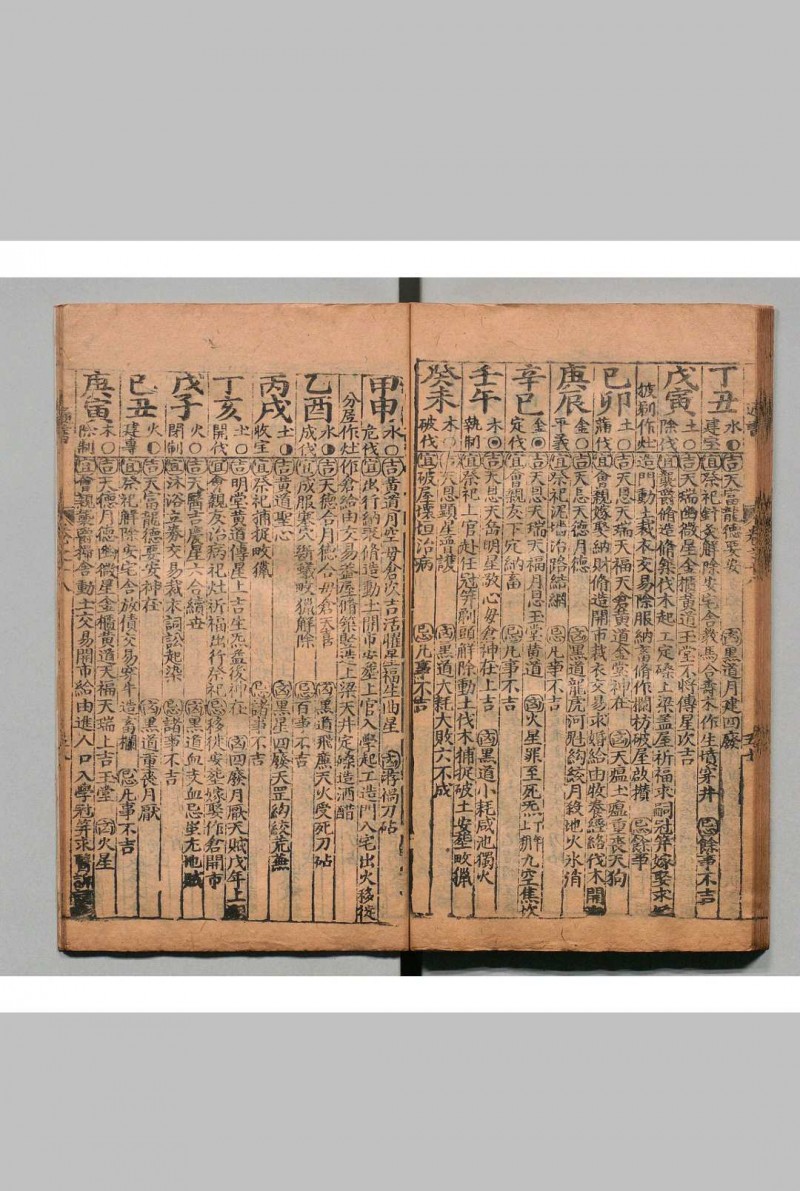 丁丑 水 建宝 吉天富龍德要安 凶黒道月建四廢
宜祭祀針灸解除安宅舍教馬合壽木作生墳穿井 忌餘事不吉
戊寅 土 除伐 吉天瑞幽微星金櫃黄道玉堂不將傳星次吉
宜襲爵脩造脩築伐木起工定磉上梁蓋屋祈福求嗣冠笄嫁娶求
披剃作灶造門動土裁衣交易除服納畜脩作攔枋破屋啟攢 忌餘事
己卯 土 滿伐 吉天恩天瑞天福天倉黄道金堂神在 凶天瘟土瘟重喪天狗
宜會親嫁娶納財脩造開市裁衣交易求婚給由牧養經絡伐木開
庚辰 金 平義 吉天恩天德月德 凶黒道龍虎河魁約絞月殺地火氷消
宜祭祀泥墻治路結網 忌凡事不吉
辛巳 金 定伐 吉天恩天瑞天福月恩玉堂黄道 凶火星罪至死炁 九空焦坎
宜會親友下定納畜 忌凡事不吉
壬午 木 執制 吉天恩天岳明星敬心母倉神在上吉 凶黒道小耗咸池獨火
宜祭祀上官赴任冠笄剃頭解除動土伐木捕捉破土安塟畋猟
癸未 木 破伐 吉天恩顕星普護 凶黒道大耗大敗六不成
宜破屋壊垣治病 忌凡事不吉
甲申 水 危伐 吉黄道月空母倉次吉活曜星福生曲星 凶滯禍刀砧
宜出行納聚脩造動土開市安塟上官入學起工造門入宅出火移徙
分居作灶作倉給由交易蓋屋脩築竪造上梁天井定磉造酒醋
乙酉 水 成伐 吉天德合月德合母倉天喜 凶黒道飛廉天火受死刀砧
宜成服塞穴斷蟻畋猟解除 忌百事不吉
丙戌 土 收宝 吉黄道聖心 凶黒星四廢天罡約絞荒蕪
宜祭祀捕捉畋猟 忌諸事不吉
丁亥 土 開伐 吉明堂黄道傳星上吉生炁益後神在 凶四廢月厭天賊戊年上
宜會親友治病祀灶祈福出行祭祀 忌移徙安塟嫁娶作倉開市
戊子 火 閉制 吉天醫吉慶星六合續世 凶黒道血支血忌坐尢地賊
宜沐浴立券交易裁衣詞訟起染 忌諸事不吉
己丑 火 建專 吉天富龍德要安神在 凶黒道重喪月厭
宜祭祀解除安宅舍放債交易安牛造畜欄 忌凡事不吉
庚寅 木 除制 吉天德月德幽微星金櫃黄道天福天瑞上吉玉堂 凶火星
宜會親襲爵掃舍動土交易開市給由進人口入學冠笄求醫